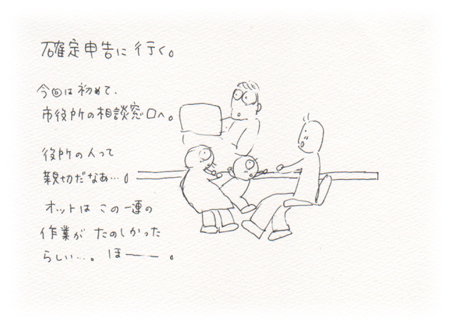 確定申告に行く。
今回は初めて、
市役所の相談窓口へ。
役所の人って
親切だなあ…。
オットはこの一連の
作業がたのしかった
らしい…。ほー。